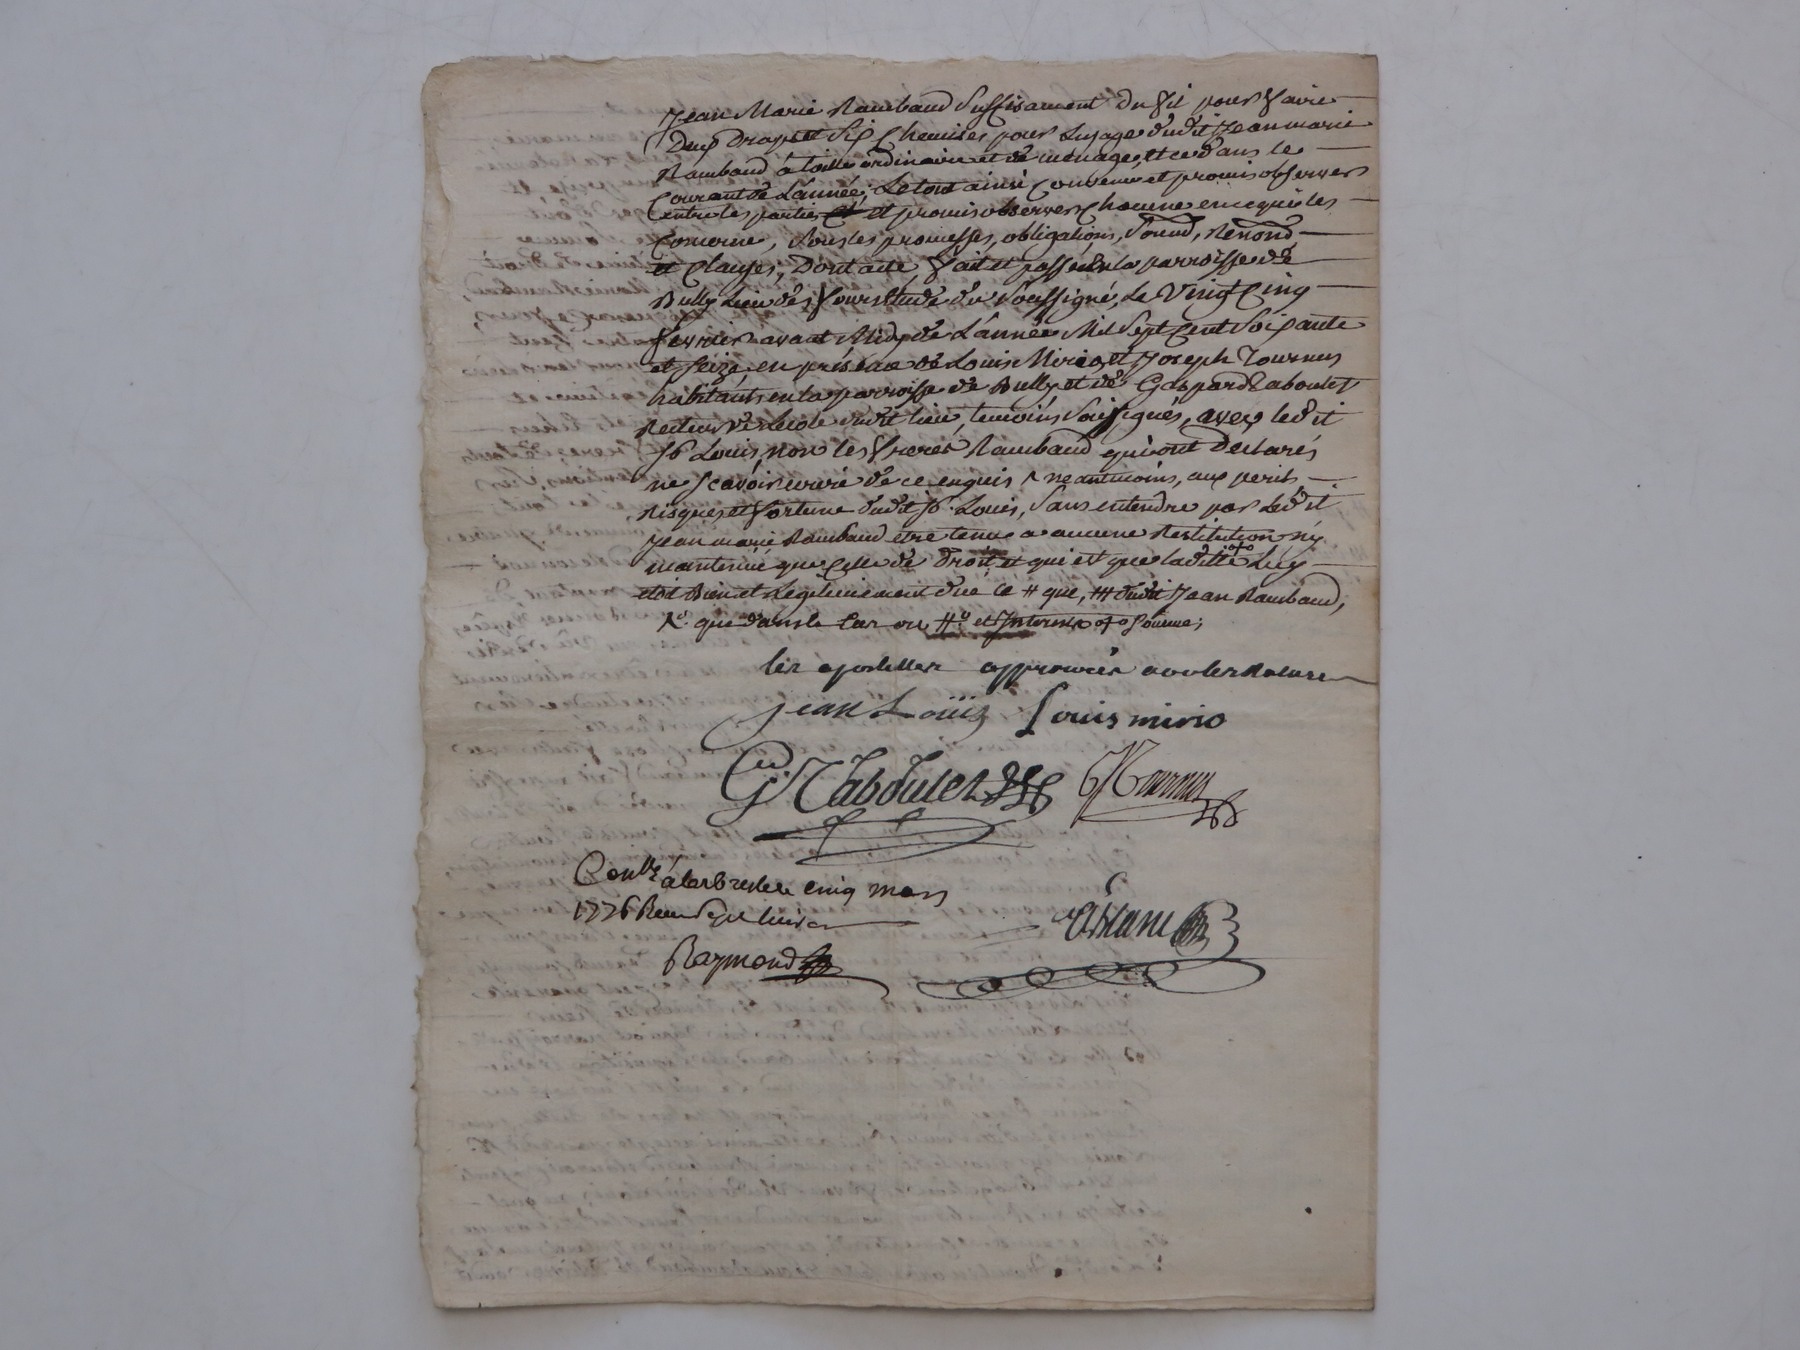 Jean Marie Rambaud Suffisament du fil pour faire
Deux Draps et Six Chemises pour Lusage dudit Jean marie
Rambaud à toille ordinaire et de menage, et ce dans le
Courant de L'année; Le tout ainsi Convenu et promis observer
entre les parties et promis observer Chacune en ce qui les
Concerne, Sous les promesses, obligations, Soumd, Renond
et Clauses, Dont acte, fait et passé en la parroisse de
Bully Lieu dès, Etude du Soussigné, Le Vingt Cinq
fevrier avant Midy de L'année Mil Sept Cent Soixante
et Seize, en présence de Louis Mirio, et Joseph Tournus
habitants en la parroisse de Bully et de Gaspard Taboulet
Recteur de Lecole dudit lieu, temoins Soussignés, avec ledit
Louis, non les freres Rambaud qui ont Declarés
ne Scavoir ecrire de ce enquis neantmoins, aux perils
Risques et fortune dudit Louis, Sans entendre par Ledit
Jean marie Rambaud etre tenu a aucune Restitution ny
mantenüe que Celle de droit et qui est que laditte Luy
etoit Bien et Legitimement düe Ce # que, dudit Jean Rambaud,
que dans le Cas ou et Interets Somme;
les apostilles approuvées
Jean Loüis Louis mirio
G Taboulet JTournus
Conllé à Larbresle le cinq mars
1776 Reçu Sept
Raymond